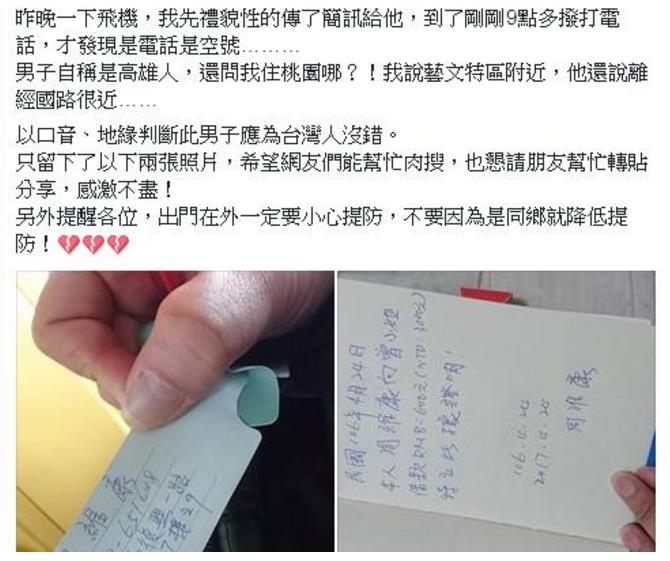 昨晚一下飛機，我先禮貌性的傳了簡訊給他，到了剛剛9點多撥打電
話，才發現是電話是空號………
男子自稱是高雄人，還問我住桃園哪？！我說藝文特區附近，他還說離
經國路很近……
以口音、地緣判斷此男子應為台灣人沒錯。
只留下了以下兩張照片，希望網友們能幫忙肉搜，也懇請朋友幫忙轉貼
分享，感激不盡！
另外提醒各位，出門在外一定要小心提防，不要因為是同鄉就降低提
防！💔💔💔
民國106年4月24日
本人周維康向曾小姐
借款RMB:600元(NTD:3000元)
特立此據證明！
106.4.24
2017.4.24
周維康
維康